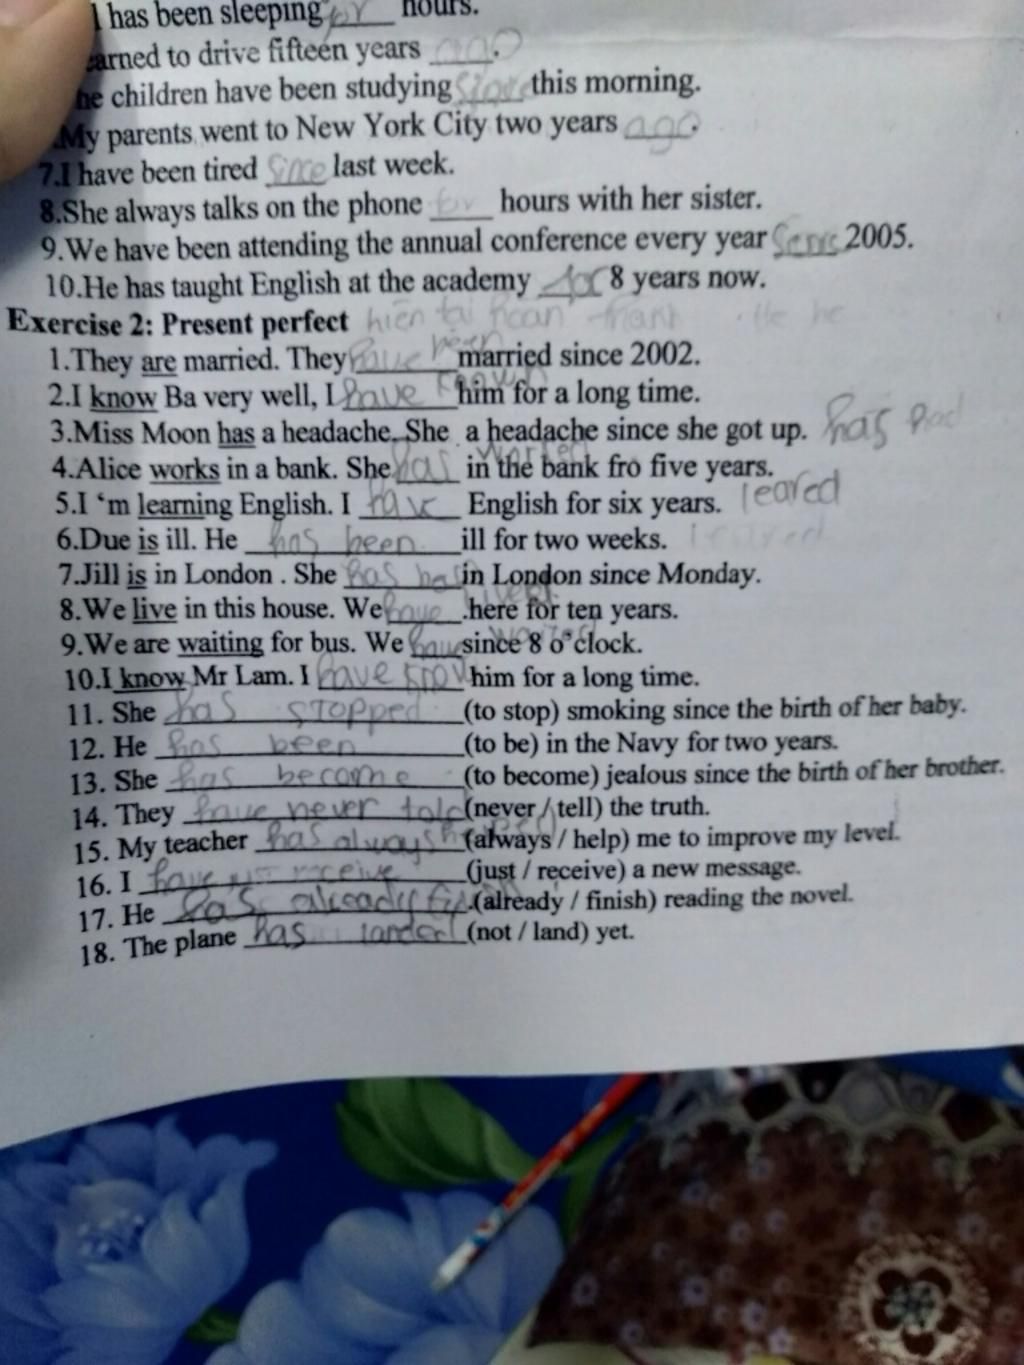 has been sleeping for hours.
earned to drive fifteen years ago.
he children have been studying since this morning.
.My parents went to New York City two years ago.
7.I have been tired since last week.
8.She always talks on the phone for hours with her sister.
9.We have been attending the annual conference every year 2005.
10.He has taught English at the academy for 8 years now.
Exercise 2: Present perfect hiên tai
1.They are married. They have been married since 2002.
2.I know Ba very well, I have known him for a long time.
3.Miss Moon has a headache. She a headache since she got up. has had
4.Alice works in a bank. She has worked in the bank fro five years.
5.I ‘m learning English. I have English for six years. leared
6.Due is ill. He has been ill for two weeks.
7.Jill is in London . She has in London since Monday.
8.We live in this house. We have lived .here for ten years.
9.We are waiting for bus. We have waited since 8 o’clock.
10.I know Mr Lam. I have him for a long time.
11. She has stopped (to stop) smoking since the birth of her baby.
12. He has been (to be) in the Navy for two years.
13. She has become (to become) jealous since the birth of her brother.
14. They have never told (never / tell) the truth.
15. My teacher has always helped (always / help) me to improve my level.
16. I have receive (just / receive) a new message.
17. He has already .(already / finish) reading the novel.
18. The plane has landed (not / land) yet.